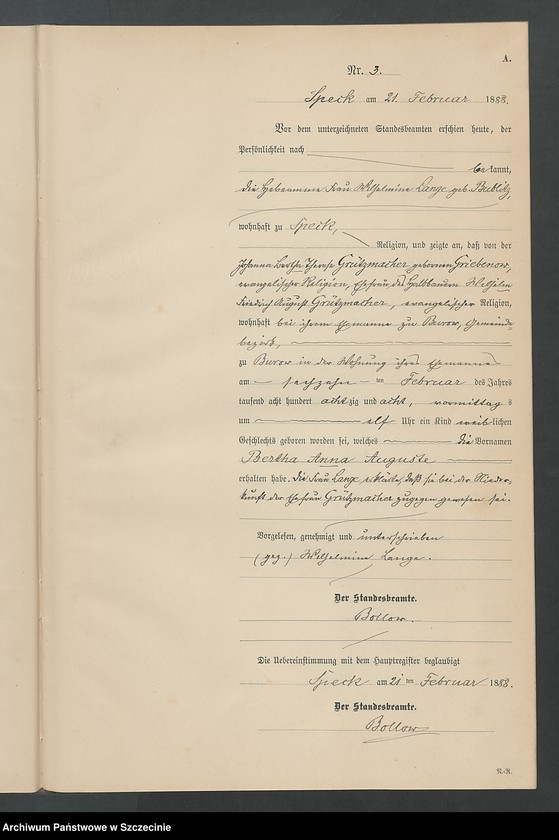 A.
Nr. 3.
Speck am 21. Februar 1888.
Vor dem unterzeichneten Standesbeamten erschien heute, der
Persönlichkeit nach
bekannt,
die Hebeamme Frau Wilhelmine Lange geb. Bublitz,
wohnhaft zu Speck,
Religion, und zeigte an, daß von der
Johanna Bertha Therese Grützmacher geborenen Griebenow,
evangelischer Religion, Ehefrau des Halbbauern Wilhelm
Friedrich August Grützmacher, evangelischer Religion,
wohnhaft bei ihrem Ehemanne zu Burow, Gemeinde
bezirk,
zu Burow in der Wohnung ihres Ehemannes
am sechzehn ten Februar des Jahres
tausend acht hundert achtzig und acht, vormittags
um elf Uhr ein Kind weiblichen
Geschlechts geboren worden sei, welches die Vornamen
Bertha Anna Auguste
erhalten habe. Die Frau Lange erklärte, daß sie bei der Nieder-
kunft der Ehefrau Grützmacher zugegen gewesen sei.
Vorgelesen, genehmigt und unterschrieben
(gez.) Wilhelmine Lange.
Der Standesbeamte.
Bollow.
Die Uebereinstimmung mit dem Hauptregister beglaubigt
Speck am 21 ten Februar 1888.
Der Standesbeamte.
Bollow
R.-R.
Archiwum Państwowe w Szczecinie